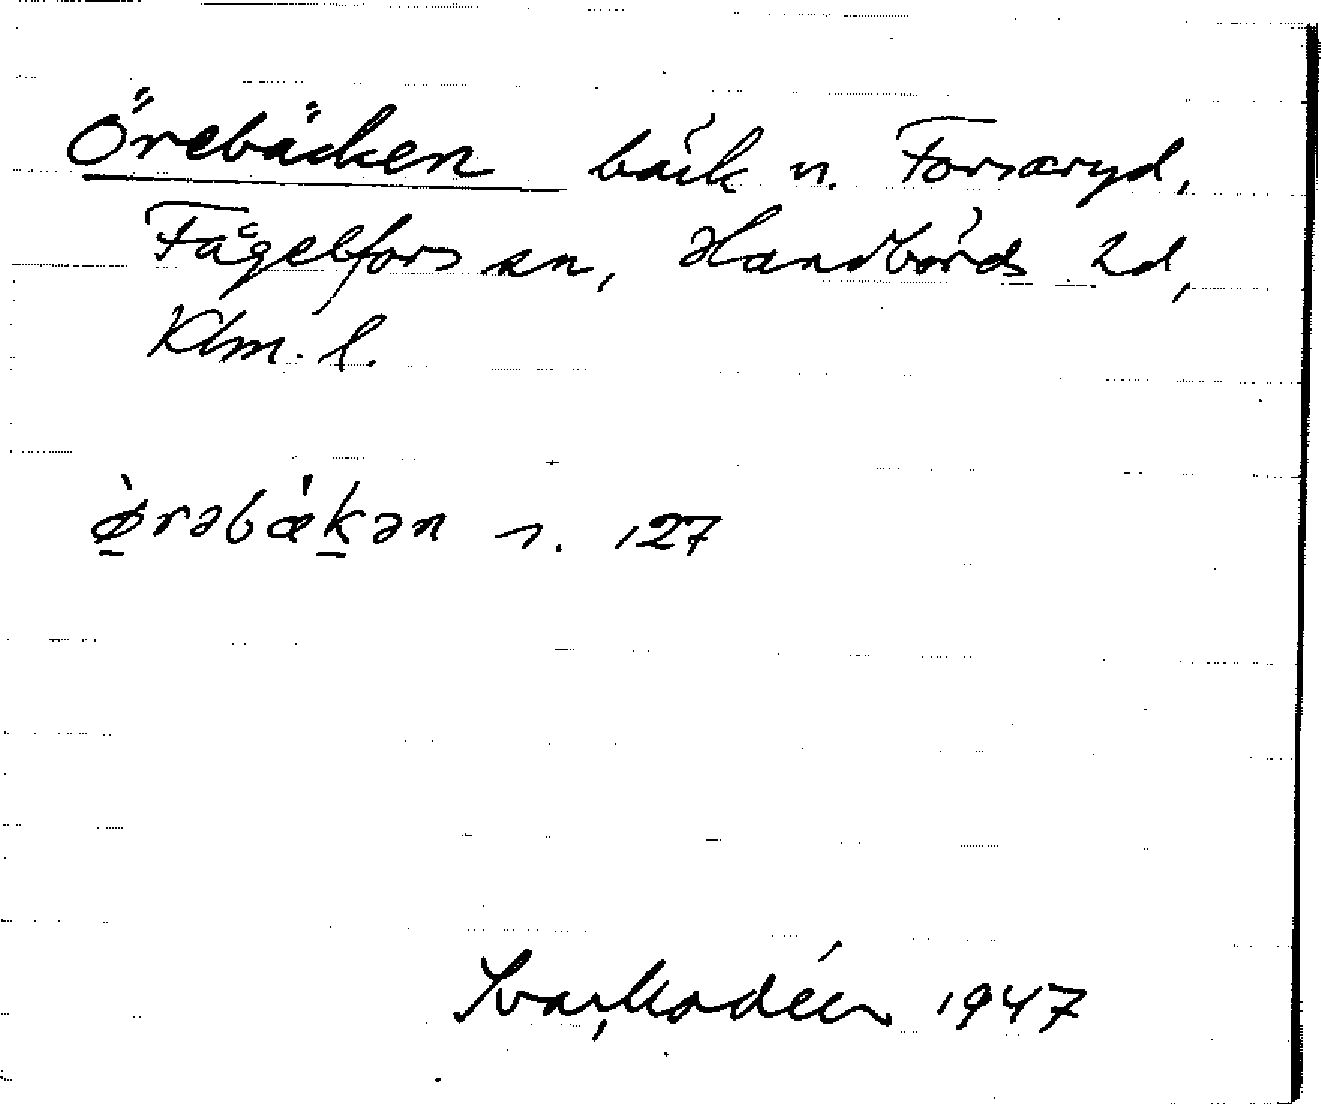 Örebäcken bäck n. Forsaryd,
Fågelfors sn, Handbörds hd,
Klm. l.
ø̀rəbæ̀kən s. 127
1947